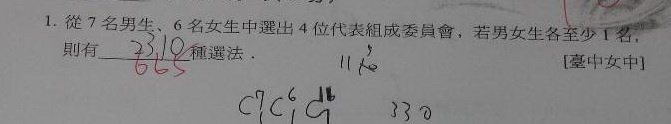 1. 從 7 名男生、6 名女生中選出 4 位代表組成委員會,若男女生各至少 1 名,
則有 2310 種選法.
665
[臺中女中]
330